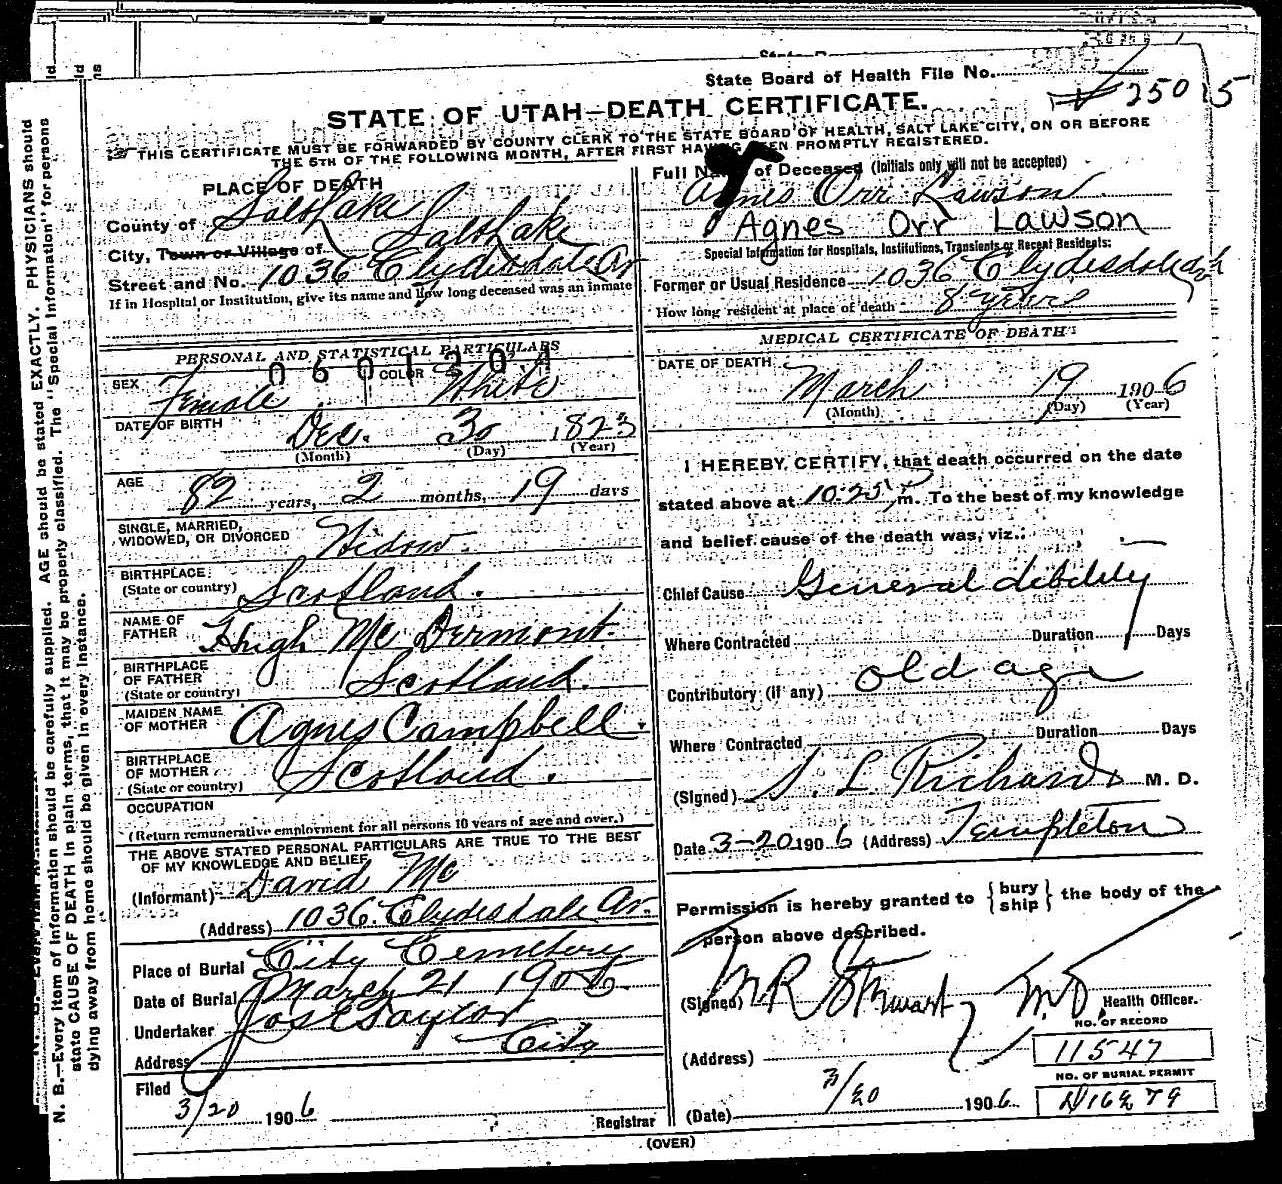 State Board of Health File No.
25015
STATE OF UTAH—DEATH CERTIFICATE.
THIS CERTIFICATE MUST BE FORWARDED BY COUNTY CLERK TO THE STATE BOARD OF HEALTH, SALT LAKE CITY, ON OR BEFORE
THE 5TH OF THE FOLLOWING MONTH, AFTER FIRST HAVING BEEN PROMPTLY REGISTERED.
PLACE OF DEATH
County of Salt Lake
City, Town or Village of Salt Lake
Street and No. 1036 Clydesdale Av
If in Hospital or Institution, give its name and how long deceased was an inmate
PERSONAL AND STATISTICAL PARTICULARS
0601304
SEX Female COLOR White
DATE OF BIRTH Dec. 30 1823
(Month) (Day) (Year)
AGE 82 years, 2 months, 19 days
SINGLE, MARRIED,
WIDOWED, OR DIVORCED Widow.
BIRTHPLACE
(State or country) Scotland.
NAME OF
FATHER Hugh Mc Dermont.
BIRTHPLACE
OF FATHER
(State or country) Scotland.
MAIDEN NAME
OF MOTHER Agnes Campbell.
BIRTHPLACE
OF MOTHER
(State or country) Scotland.
OCCUPATION
(Return remunerative employment for all persons 10 years of age and over.)
THE ABOVE STATED PERSONAL PARTICULARS ARE TRUE TO THE BEST
OF MY KNOWLEDGE AND BELIEF
(Informant) David Mc
(Address) 1036 Clydesdale Av.
Place of Burial City Cemetery
Date of Burial March 21 1906
Undertaker Jos E Taylor
Address City
Filed
3/20 1906
Registrar
Full Name of Deceased (Initials only will not be accepted)
Agnes Orr Lawson
Agnes Orr Lawson
Special Information for Hospitals, Institutions, Transients or Recent Residents:
Former or Usual Residence 1036 Clydesdale
How long resident at place of death 8 years
MEDICAL CERTIFICATE OF DEATH
DATE OF DEATH
March 19 1906
(Month) (Day) (Year)
I HEREBY CERTIFY, that death occurred on the date
stated above at 10:25 P m. To the best of my knowledge
and belief cause of the death was, viz.:
Chief Cause General debility
Where Contracted Duration Days
Contributory (if any) old age
Where Contracted Duration Days
(Signed) S. L. Richards M. D.
Date 3-20 1906 (Address) Templeton
Permission is hereby granted to {bury ship} the body of the
person above described.
(Signed) M R Stewart, M.D. Health Officer.
NO. OF RECORD
(Address) 11547
NO. OF BURIAL PERMIT
3/20
(Date) 1906
(OVER)
N. B.—Every item of information should be carefully supplied. AGE should be stated EXACTLY. PHYSICIANS should
state CAUSE OF DEATH in plain terms, that it may be properly classified. The "Special Information" for persons
dying away from home should be given in every instance.